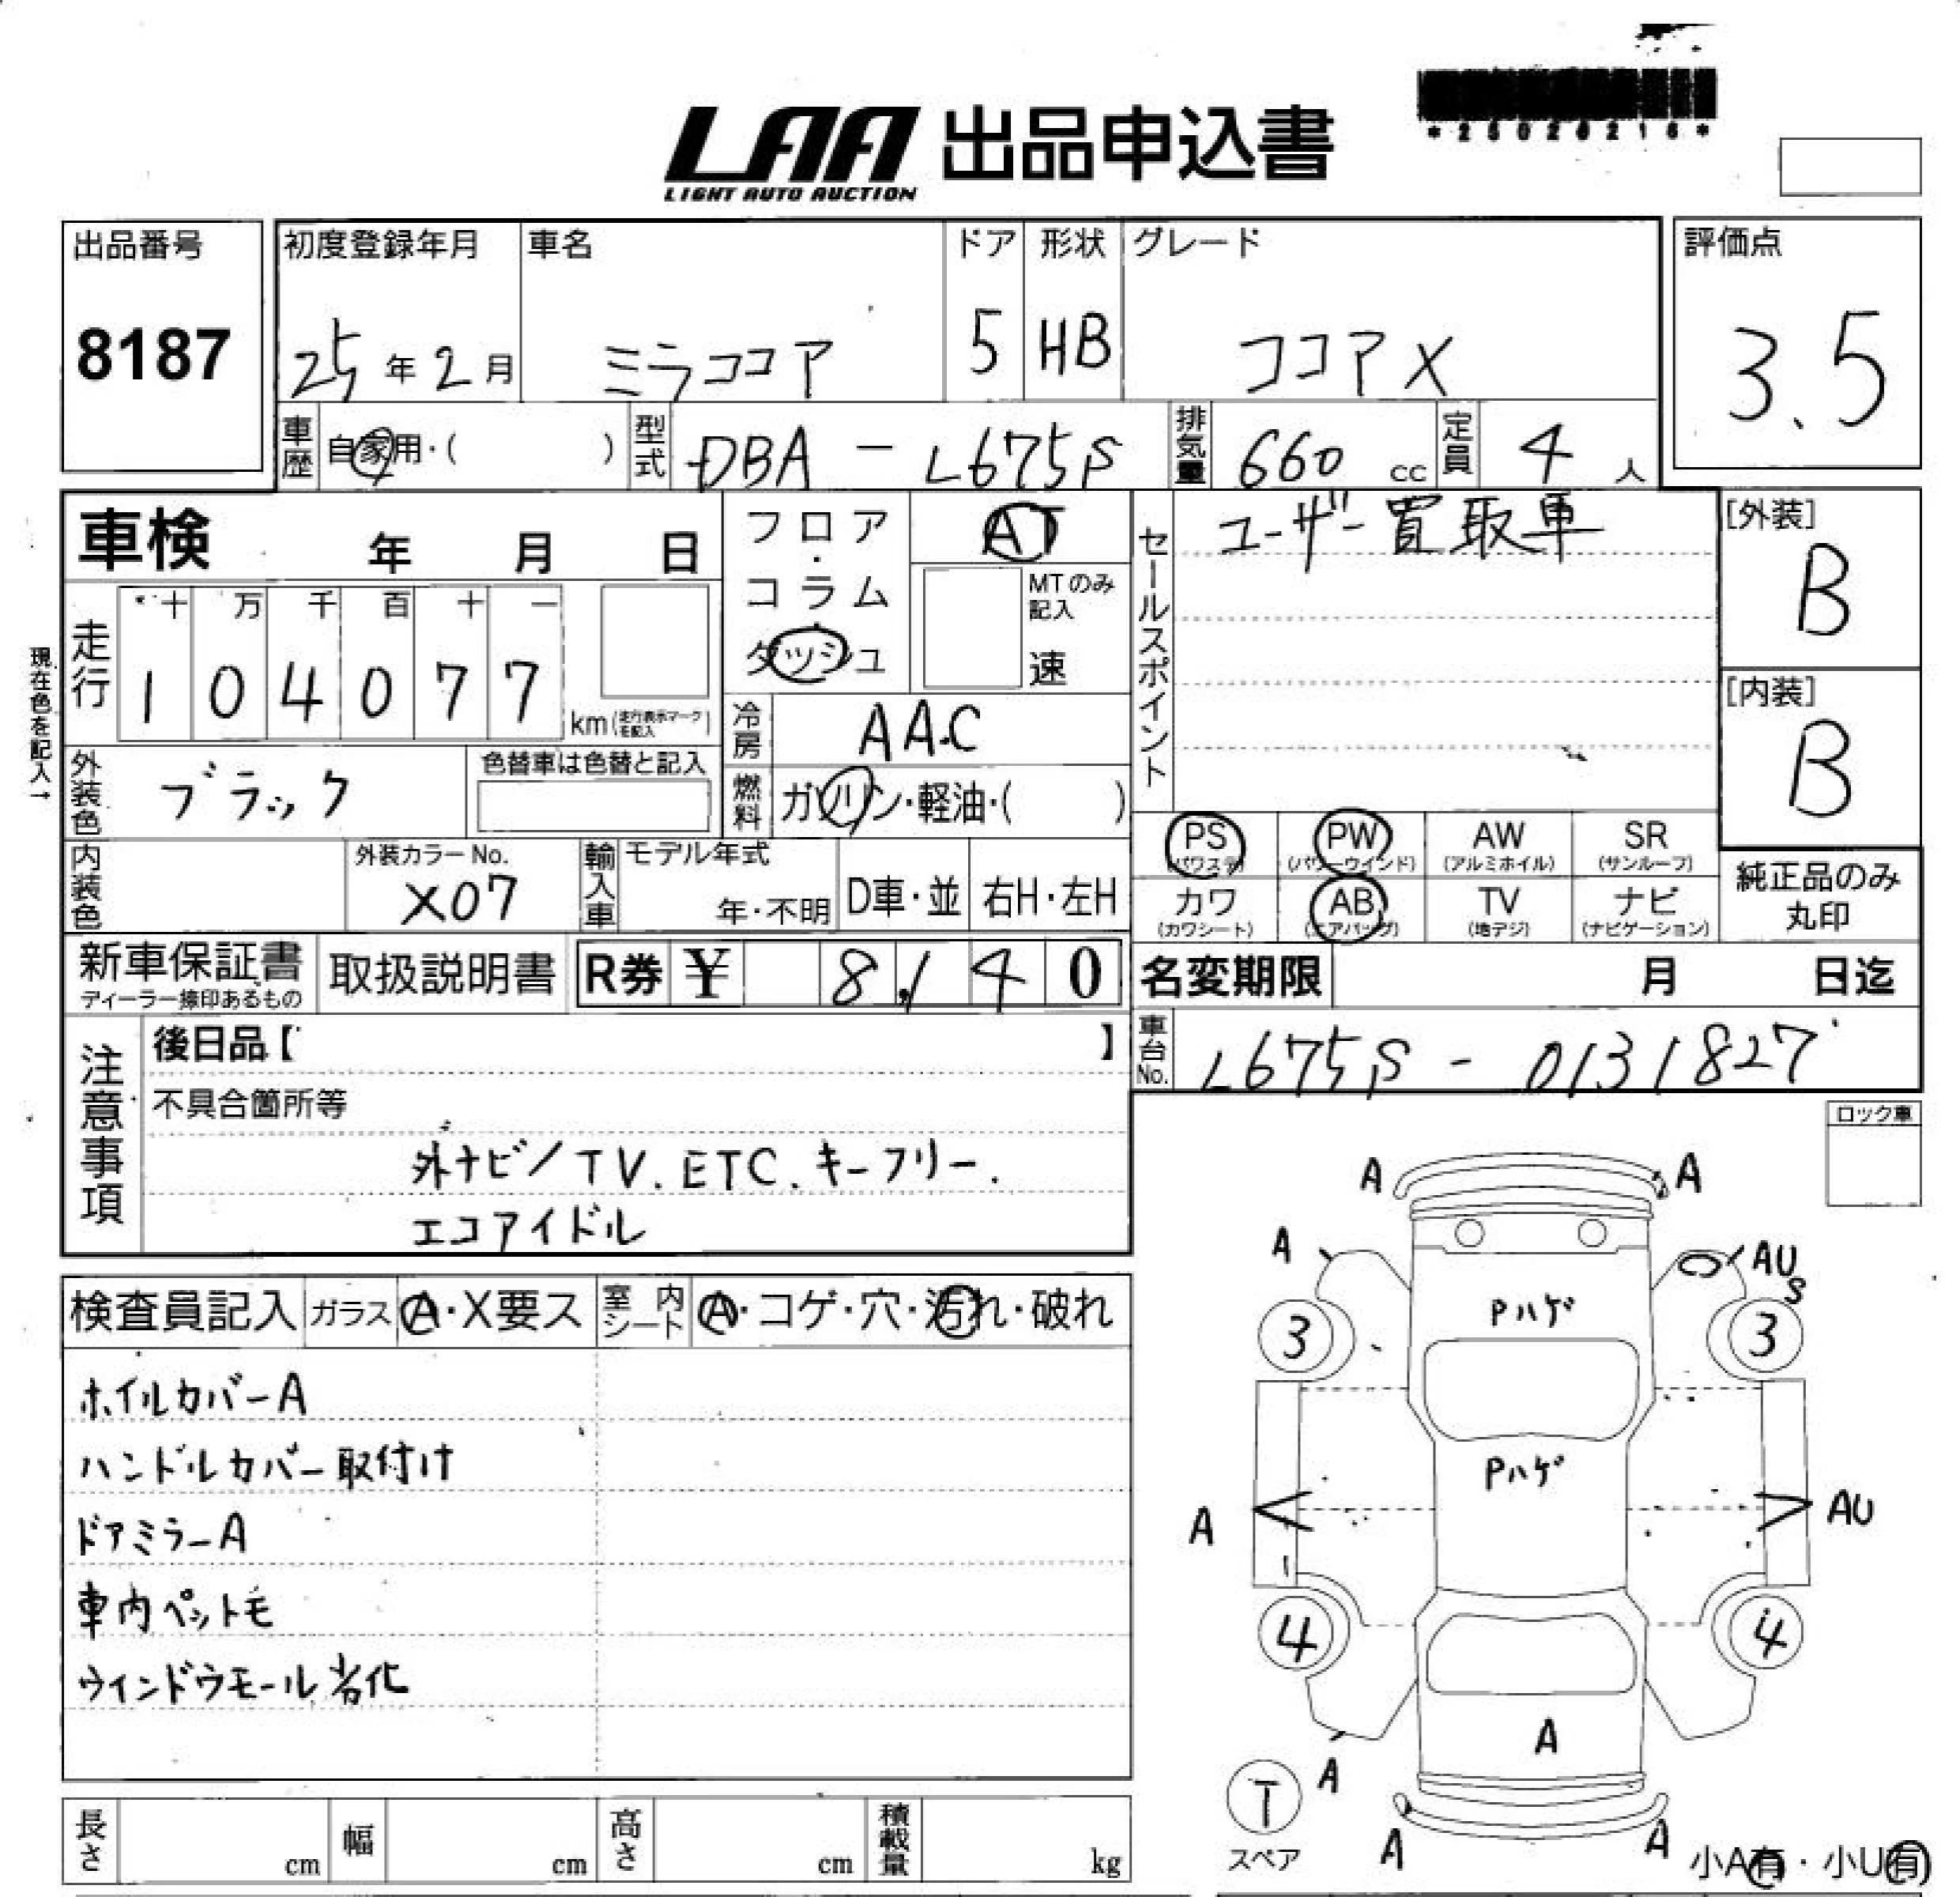 LAA 出品申込書
LIGHT AUTO AUCTION
出品番号
8187
初度登録年月
25年2月
車名
ミラココア
ドア
5
形状
HB
グレード
ココアX
評価点
3.5
車歴 自家用・( )
型式 DBA - L675S
排気量 660 cc
定員 4 人
車検 年 月 日
現在色を記入→
走行
十 万 千 百 十 一
1 0 4 0 7 7
km(走行表示マークを記入)
フロア・コラム・ダッシュ
AT
MTのみ記入
速
冷房 AAC
燃料 ガソリン・軽油・( )
外装色 ブラック
色替車は色替と記入
内装色
外装カラーNo.
X07
輸入車
モデル年式
年・不明
D車・並
右H・左H
セールスポイント
ユーザー買取車
[外装]
B
[内装]
B
PS (パワステ)
PW (パワーウインド)
AW (アルミホイル)
SR (サンルーフ)
カワ (カワシート)
AB (エアバッグ)
TV (地デジ)
ナビ (ナビゲーション)
純正品のみ
丸印
新車保証書
ディーラー捺印あるもの
取扱説明書
R券 ¥ 8,140
名変期限 月 日迄
車台No. L675S - 0131827
注意事項
後日品【 】
不具合箇所等
外ナビ/TV.ETC.キーフリー.
エコアイドル
ロック車
検査員記入
ガラス A・X要ス
室内シート A・コゲ・穴・汚れ・破れ
ホイルカバーA
ハンドルカバー取付け
ドアミラーA
車内ペット毛
ウインドウモール劣化
A A
A AU
S
Pハゲ
3 3
Pハゲ
A AU
4 4
A
A
T
スペア
A A
小A有・小U有
長さ cm
幅 cm
高さ cm
積載量 kg